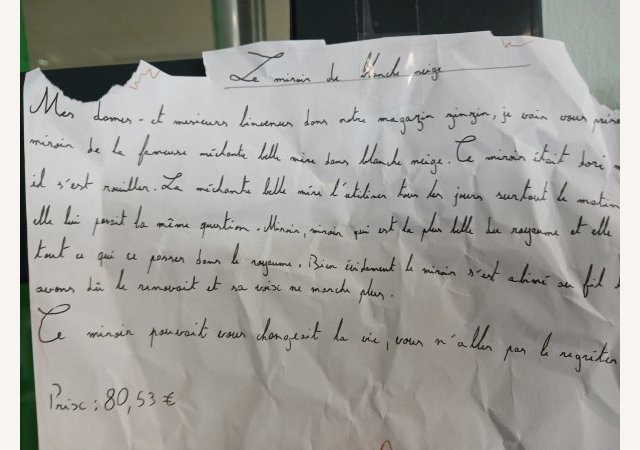 Le miroir de blanche neige
Mes dames - et mesieurs bienvenus dans notre magazin zinzin, je vais vous
miroir de la fameuse méchante belle mère dans blanche neige. Ce miroir était doré
il s'est rouiller. La méchante belle mère l'utiliser tous les jours surtout le matin
elle lui posait la même question. Miroir, miroir qui est la plus belle du royaume et elle
tout ce qui ce passer dans le royaume. Bien évidement le miroir s'est abimé au fil
avons dû le renovait et sa voix ne marche plus.
Ce miroir pouvait vous changeait la vie, vous n'aller pas le regréter
Prix : 80,53 €